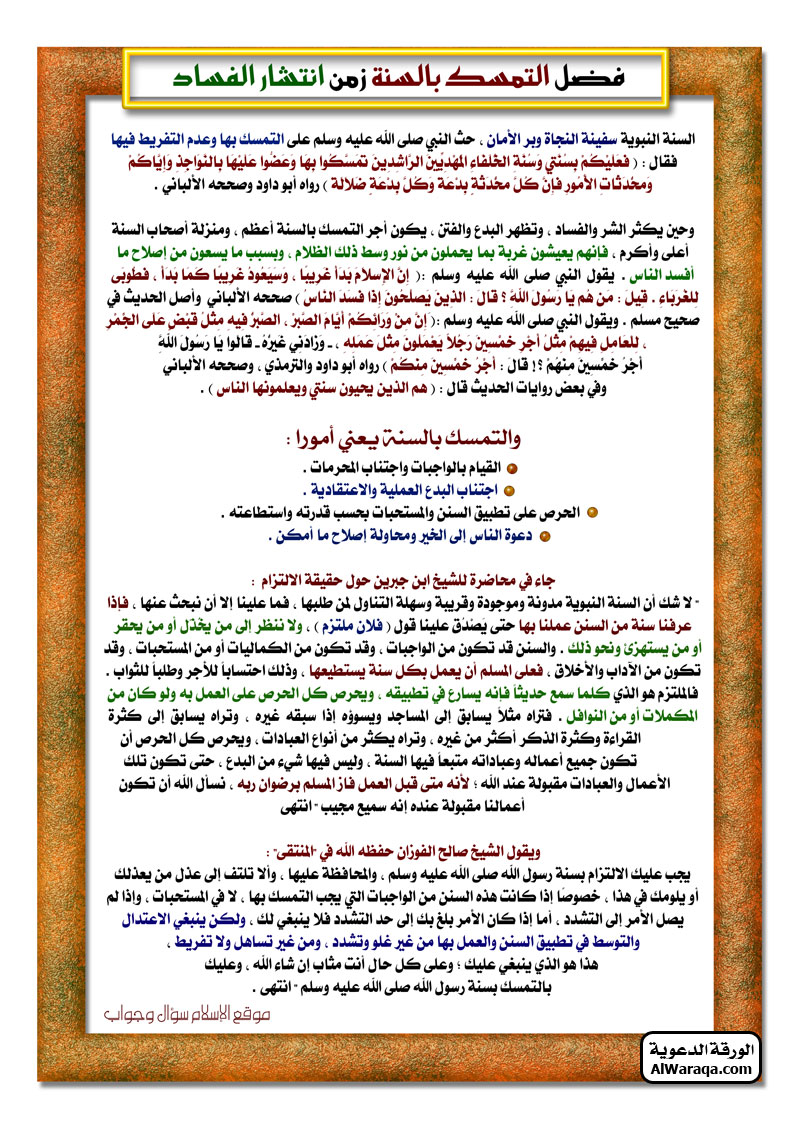 فضل التمسك بالسنة زمن انتشار الفساد
السنة النبوية سفينة النجاة وبر الأمان ، حث النبي صلى الله عليه وسلم على التمسك بها وعدم التفريط فيها
فقال : ( فَعَلَيْكُمْ بِسُنَّتِي وَسُنَّةِ الخُلَفَاءِ المَهْدِيِّينَ الرَّاشِدِينَ تَمَسَّكُوا بِهَا وَعَضُّوا عَلَيْهَا بِالنَّوَاجِذِ وَإِيَّاكُمْ
وَمُحْدَثَاتِ الأُمُورِ فَإِنَّ كُلَّ مُحْدَثَةٍ بِدْعَةٌ وَكُلَّ بِدْعَةٍ ضَلَالَةٌ ) رواه أبو داود وصححه الألباني .
وحين يكثر الشر والفساد ، وتظهر البدع والفتن ، يكون أجر التمسك بالسنة أعظم ، ومنزلة أصحاب السنة
أعلى وأكرم ، فإنهم يعيشون غربة بما يحملون من نور وسط ذلك الظلام ، وبسبب ما يسعون من إصلاح ما
أفسد الناس . يقول النبي صلى الله عليه وسلم :( إِنَّ الإِسْلَامَ بَدَأَ غَرِيبًا ، وَسَيَعُودُ غَرِيبًا كَمَا بَدَأَ ، فَطُوبَى
لِلغُرَبَاءِ . قِيلَ : مَن هُم يَا رَسُولَ اللهِ ؟ قَالَ : الذِينَ يَصْلُحُونَ إِذَا فَسَدَ النَّاسُ ) صححه الألباني وأصل الحديث في
صحيح مسلم . ويقول النبي صلى الله عليه وسلم :( إِنَّ مِنْ وَرَائِكُمْ أَيَّامَ الصَّبْرِ ، الصَّبْرُ فِيهِ مِثْلُ قَبْضٍ عَلَى الجَمْرِ
، لِلعَامِلِ فِيهِمْ مِثْلُ أَجْرِ خَمْسِينَ رَجُلًا يَعْمَلُونَ مِثْلَ عَمَلِهِ ، ـ وَزَادَنِي غَيْرُهُ ـ قالوا يَا رَسُولَ اللهِ
أَجْرُ خَمْسِينَ مِنْهُمْ ؟! قَالَ : أَجْرُ خَمْسِينَ مِنكُمْ ) رواه أبو داود والترمذي ، وصححه الألباني
وفي بعض روايات الحديث قال : ( هم الذين يحيون سنتي ويعلمونها الناس ) .
والتمسك بالسنة يعني أمورا :
القيام بالواجبات واجتناب المحرمات .
اجتناب البدع العملية والاعتقادية .
الحرص على تطبيق السنن والمستحبات بحسب قدرته واستطاعته .
دعوة الناس إلى الخير ومحاولة إصلاح ما أمكن .
جاء في محاضرة للشيخ ابن جبرين حول حقيقة الالتزام :
" لا شك أن السنة النبوية مدونة وموجودة وقريبة وسهلة التناول لمن طلبها ، فما علينا إلا أن نبحث عنها ، فإذا
عرفنا سنة من السنن عملنا بها حتى يَصْدُقَ علينا قول ( فلان ملتزم ) ، ولا ننظر إلى من يخُذِّل أو من يحقر
أو من يستهزئ ونحو ذلك . والسنن قد تكون من الواجبات ، وقد تكون من الكماليات أو من المستحبات ، وقد
تكون من الآداب والأخلاق ، فعلى المسلم أن يعمل بكل سنة يستطيعها ، وذلك احتساباً للأجر وطلباً للثواب .
فالملتزم هو الذي كلما سمع حديثاً فإنه يسارع في تطبيقه ، ويحرص كل الحرص على العمل به ولو كان من
المكملات أو من النوافل . فتراه مثلاً يسابق إلى المساجد ويسوؤه إذا سبقه غيره ، وتراه يسابق إلى كثرة
القراءة وكثرة الذكر أكثر من غيره ، وتراه يكثر من أنواع العبادات ، ويحرص كل الحرص أن
تكون جميع أعماله وعباداته متبعاً فيها السنة ، وليس فيها شيء من البدع ، حتى تكون تلك
الأعمال والعبادات مقبولة عند الله ؛ لأنه متى قبل العمل فاز المسلم برضوان ربه ، نسأل الله أن تكون
أعمالنا مقبولة عنده إنه سميع مجيب " انتهى
ويقول الشيخ صالح الفوزان حفظه الله في "المنتقى" :
يجب عليك الالتزام بسنة رسول الله صلى الله عليه وسلم ، والمحافظة عليها ، وألا تلتفت إلى عذل من يعذلك
أو يلومك في هذا ، خصوصًا إذا كانت هذه السنن من الواجبات التي يجب التمسك بها ، لا في المستحبات ، وإذا لم
يصل الأمر إلى التشدد ، أما إذا كان الأمر بلغ بك إلى حد التشدد فلا ينبغي لك ، ولكن ينبغي الاعتدال
والتوسط في تطبيق السنن والعمل بها من غير غلو وتشدد ، ومن غير تساهل ولا تفريط ،
هذا هو الذي ينبغي عليك ؛ وعلى كل حال أنت مثاب إن شاء الله ، وعليك
بالتمسك بسنة رسول الله صلى الله عليه وسلم " انتهى .
موقع الإسلام سؤال وجواب
الورقة الدعوية
AlWaraqa.com